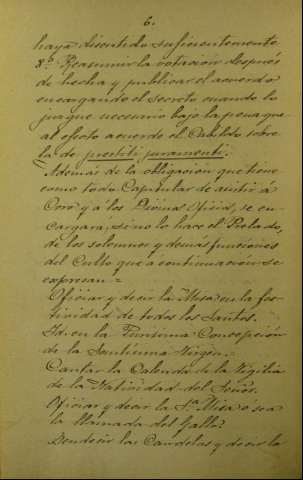 6.
haya discutido suficientemente
8º Reasumir la votacion despues
de hecha y publicar el acuerdo
encargando el secreto cuando lo
juzgue necesario bajo la pena que
al efecto acuerde el Cabildo sobre
la de prestiti juramenti.
Además de la obligacion que tiene
como todo Capitular de asistir á
Coro y á los Divinos Oficios, se en-
cargará, si no lo hace el Prelado,
de los solemnes y demás funciones
del Culto que á continuacion se
expresan =
Oficiar y decir la Misa en la fes-
tividad de todos los Santos.
Id. en la Purísima Concepcion
de la Santísima Virgen.
Cantar la Calenda de la Vigilia
de la Natividad del Señor.
Oficiar y decir la 1ª Misa ó sea
la llamada del Gallo.
Bendecir las Candelas y decir la